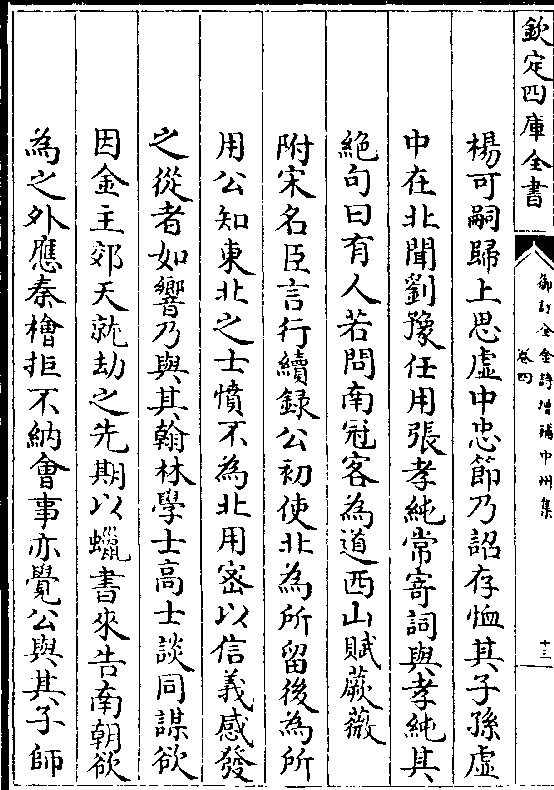 欽定四庫全書
御訂全金詩增補中州集
卷四
十三
楊可嗣歸上思虛中忠節乃詔存恤其子孫虛
中在北聞劉豫任用張孝純常寄詞與孝純其
絶句曰有人若問南冠客為道西山賦蕨薇
附宋名臣言行續録公初使北為所留後為所
用公知東北之士憤不為北用密以信義感發
之從者如響乃與其翰林學士高士談同謀欲
因金主郊天就劫之先期以蠟書來告南朝欲
為之外應秦檜拒不納會事亦覺公與其子師